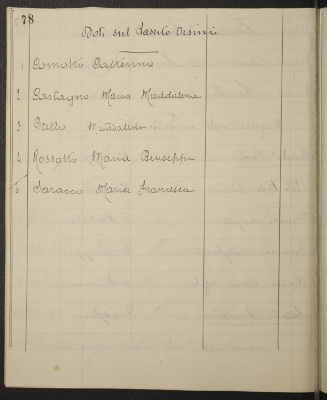 78
Doti sul Lascito Orsini
1 Comotto Catterina
2 Castagno Maria Maddalena
3 Gallo Maddalena
4 Rossotto Maria Giuseppa
5 Saracco Maria Francesca